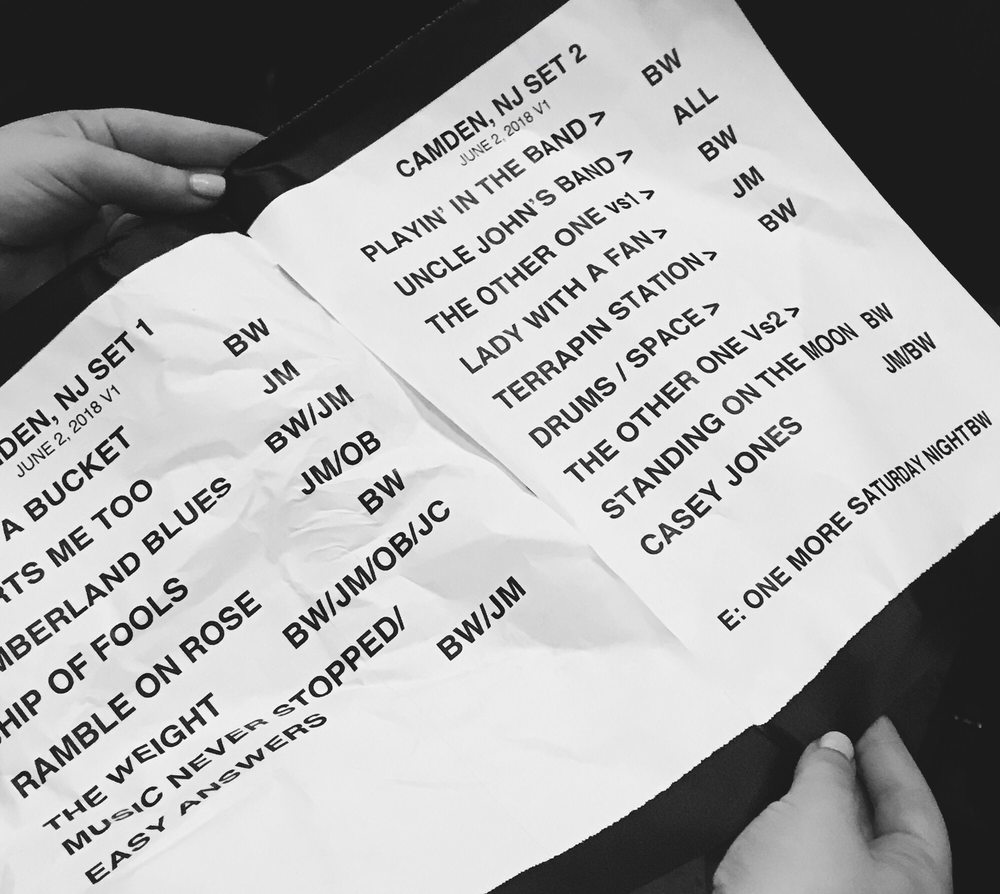 DEN, NJ SET 1
JUNE 2, 2018 V1
A BUCKET BW
RTS ME TOO JM
MBERLAND BLUES BW/JM
HIP OF FOOLS JM/OB
RAMBLE ON ROSE BW
THE WEIGHT BW/JM/OB/JC
MUSIC NEVER STOPPED/
EASY ANSWERS BW/JM
CAMDEN, NJ SET 2
JUNE 2, 2018 V1
PLAYIN' IN THE BAND > BW
UNCLE JOHN'S BAND > ALL
THE OTHER ONE vs1 > BW
LADY WITH A FAN > JM
TERRAPIN STATION > BW
DRUMS / SPACE >
THE OTHER ONE Vs2 >
STANDING ON THE MOON BW
CASEY JONES JM/BW
E: ONE MORE SATURDAY NIGHT BW